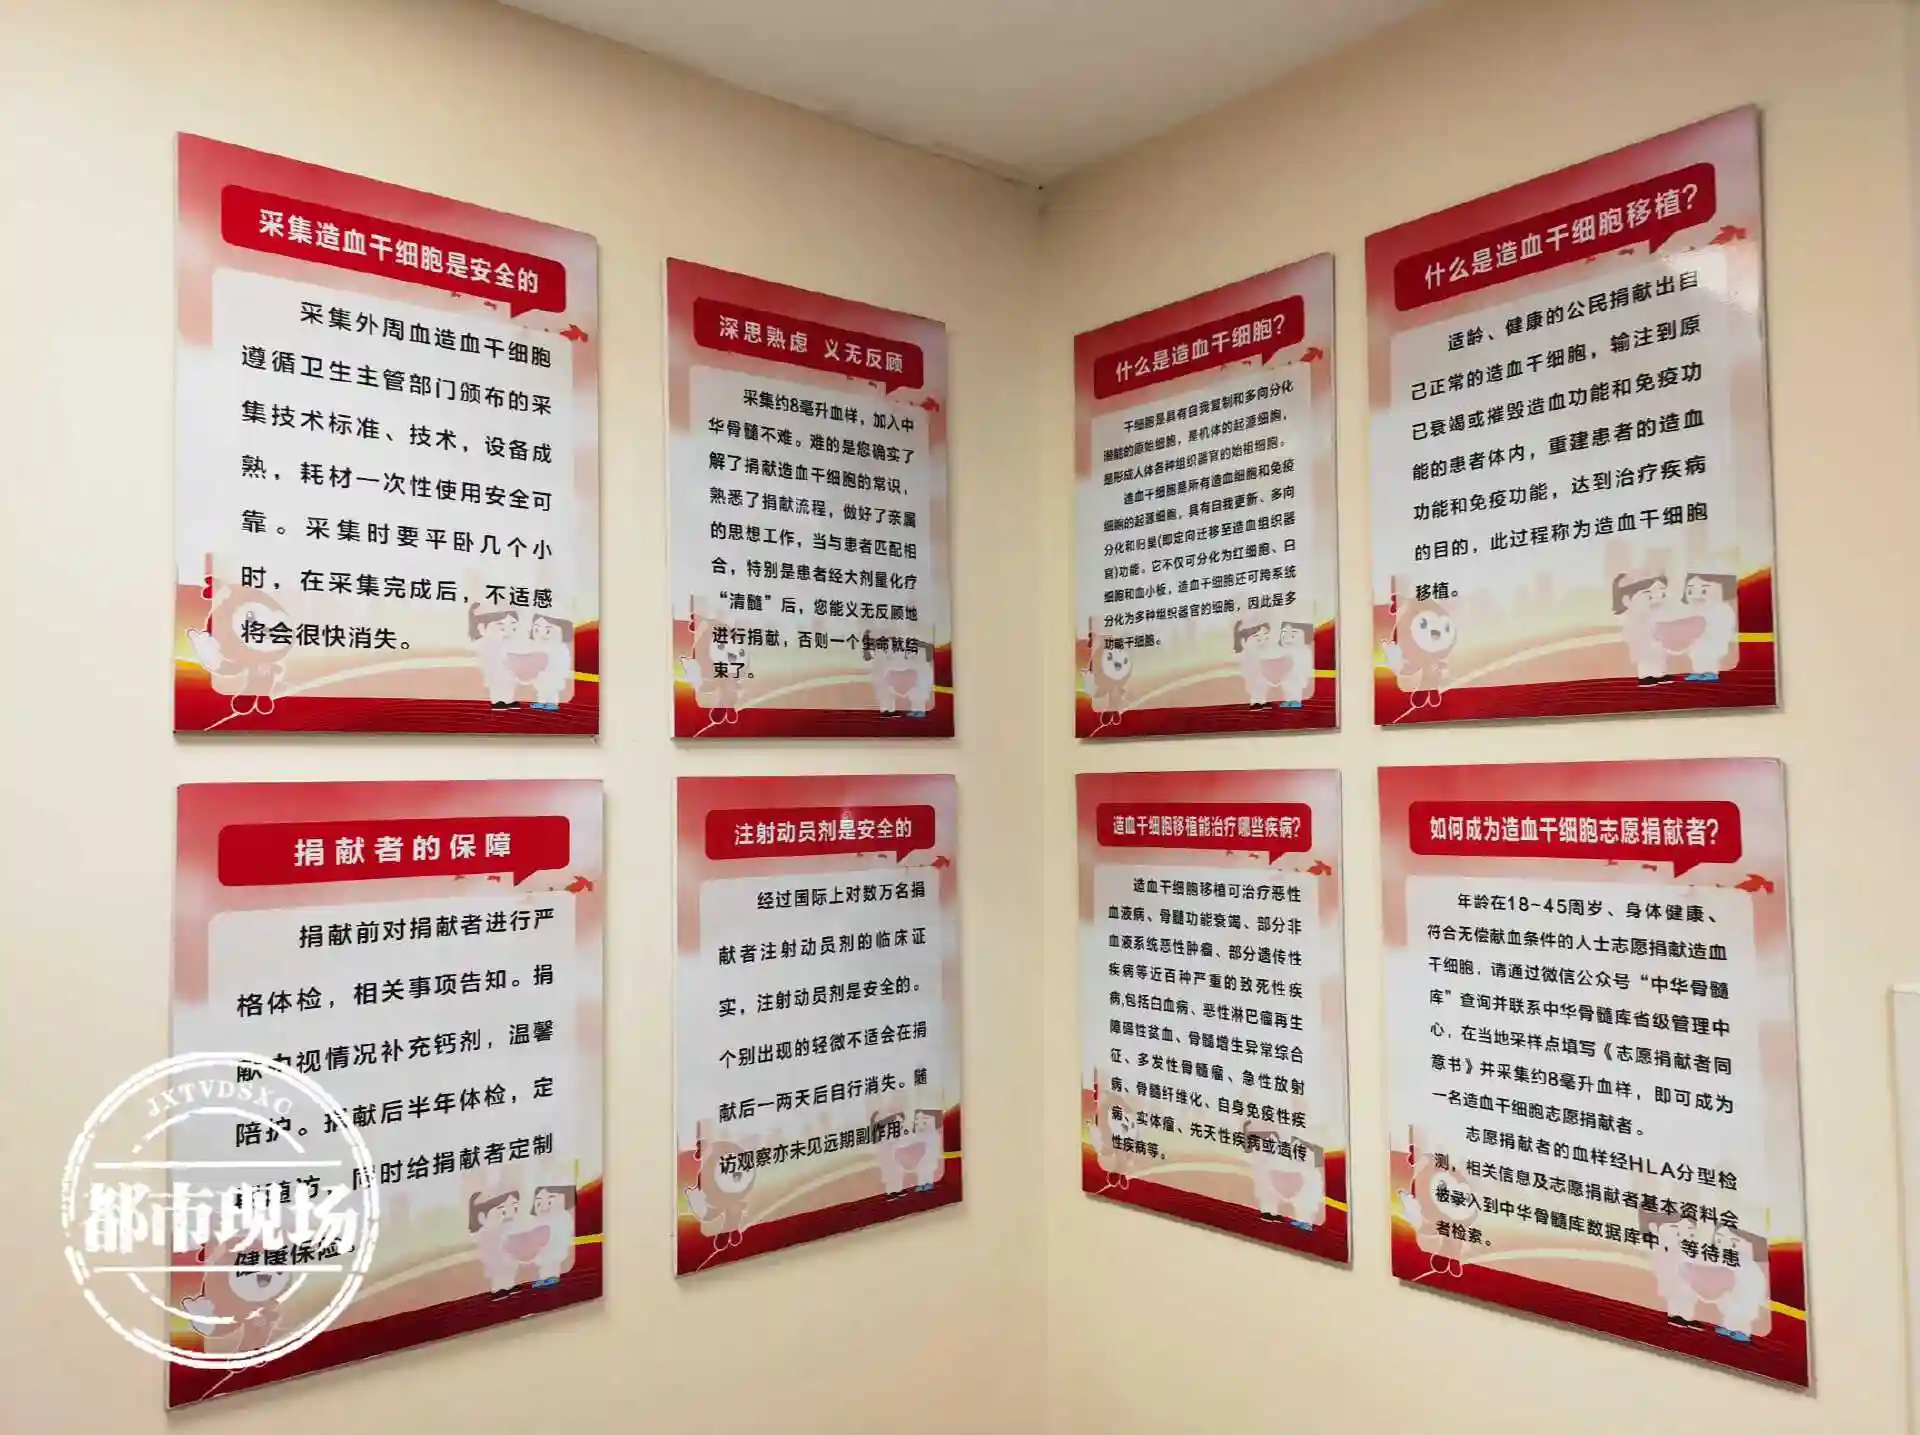 采集造血干细胞是安全的
采集外周血造血干细胞
遵循卫生主管部门颁布的采
集技术标准、技术，设备成
熟，耗材一次性使用安全可
靠。采集时要平卧几个小
时，在采集完成后，不适感
将会很快消失。
深思熟虑 义无反顾
采集约8毫升血样，加入中
华骨髓不难。难的是您确实了
解了捐献造血干细胞的常识，
熟悉了捐献流程，做好了亲属
的思想工作，当与患者匹配相
合，特别是患者经大剂量化疗
“清髓”后，您能义无反顾地
进行捐献，否则一个生命就结
束了。
什么是造血干细胞？
干细胞是具有自我复制和多向分化
潜能的原始细胞，是机体的起源细胞，
是形成人体各种组织器官的始祖细胞。
造血干细胞是所有造血细胞和免疫
细胞的起源细胞，具有自我更新、多向
分化和归巢(即定向迁移至造血组织器
官)功能。它不仅可分化为红细胞、白
细胞和血小板，造血干细胞还可跨系统
分化为多种组织器官的细胞，因此是多
功能干细胞。
什么是造血干细胞移植？
适龄、健康的公民捐献出自
己正常的造血干细胞，输注到原
已衰竭或摧毁造血功能和免疫功
能的患者体内，重建患者的造血
功能和免疫功能，达到治疗疾病
的目的，此过程称为造血干细胞
移植。
捐献者的保障
捐献前对捐献者进行严
格体检，相关事项告知。捐
献 视情况补充钙剂，温馨
陪护。捐献后半年体检，定
随访，同时给捐献者定制
健康保险。
注射动员剂是安全的
经过国际上对数万名捐
献者注射动员剂的临床证
实，注射动员剂是安全的。
个别出现的轻微不适会在捐
献后一两天后自行消失。随
访观察亦未见远期副作用。
造血干细胞移植能治疗哪些疾病？
造血干细胞移植可治疗恶性
血液病、骨髓功能衰竭、部分非
血液系统恶性肿瘤、部分遗传性
疾病等近百种严重的致死性疾
病,包括白血病、恶性淋巴瘤再生
障碍性贫血、骨髓增生异常综合
征、多发性骨髓瘤、急性放射
病、骨髓纤维化、自身免疫性疾
病、实体瘤、先天性疾病或遗传
性疾病等。
如何成为造血干细胞志愿捐献者？
年龄在18-45周岁、身体健康、
符合无偿献血条件的人士志愿捐献造血
干细胞，请通过微信公众号“中华骨髓
库”查询并联系中华骨髓库省级管理中
心，在当地采样点填写《志愿捐献者同
意书》并采集约8毫升血样，即可成为
一名造血干细胞志愿捐献者。
志愿捐献者的血样经HLA分型检
测，相关信息及志愿捐献者基本资料会
被录入到中华骨髓库数据库中，等待患
者检索。
JXTVDSXC
都市现场